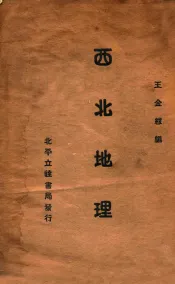 王金紱編
西北地理
北平立達書局發行